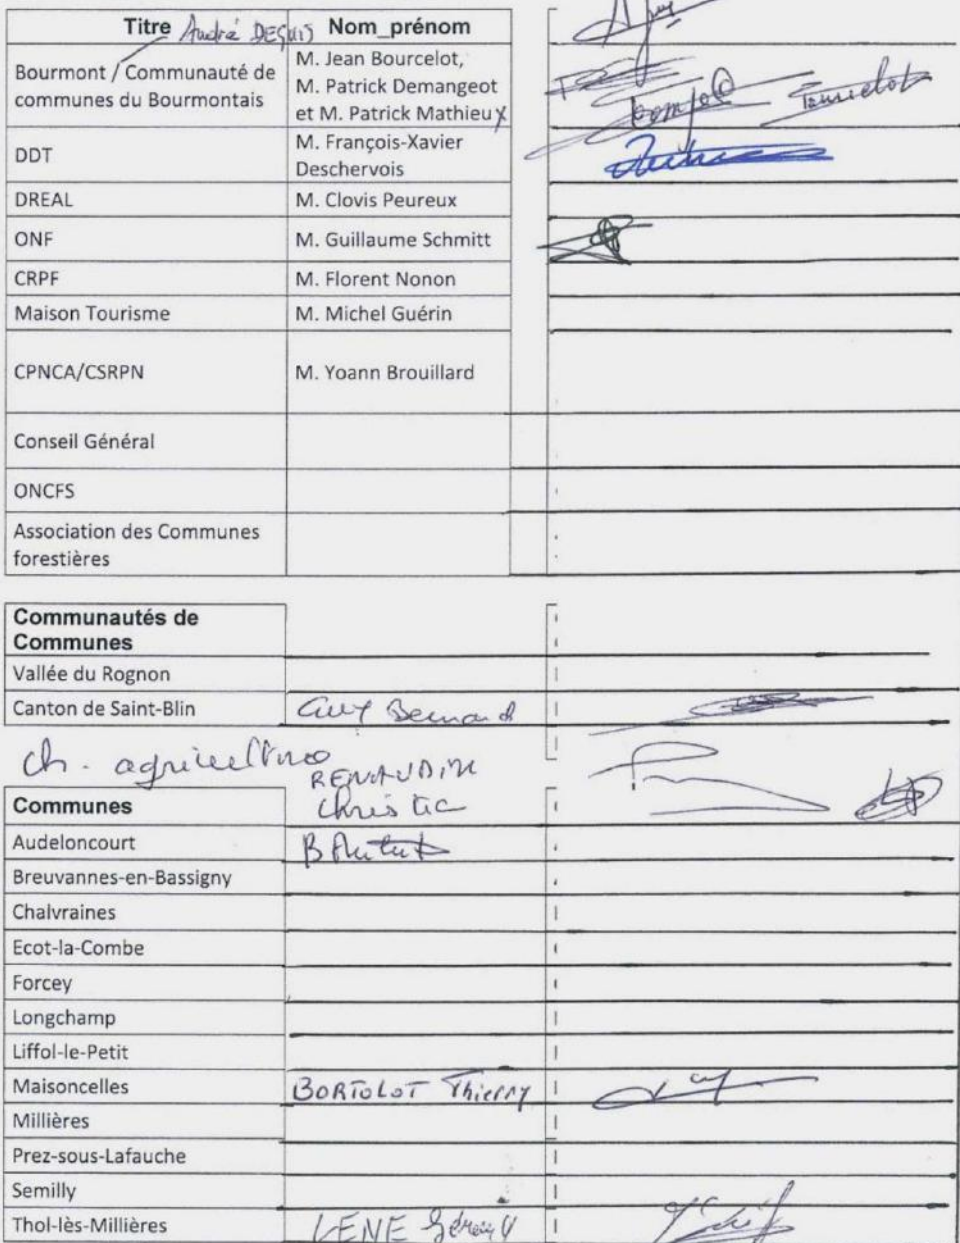 Titre André DEGUIS Nom_prénom
Bourmont / Communauté de communes du Bourmontais
M. Jean Bourcelot,
M. Patrick Demangeot
et M. Patrick Mathieux
DDT
M. François-Xavier
Deschervois
DREAL M. Clovis Peureux
ONF M. Guillaume Schmitt
CRPF M. Florent Nonon
Maison Tourisme M. Michel Guérin
CPNCA/CSRPN M. Yoann Brouillard
Conseil Général
ONCFS
Association des Communes
forestières
Communautés de
Communes
Vallée du Rognon
Canton de Saint-Blin Guy Bernard
Ch. agriculture
RENAUDIN
Communes
Audeloncourt
Breuvannes-en-Bassigny
Chalvraines
Ecot-la-Combe
Forcey
Longchamp
Liffol-le-Petit
Maisoncelles BORTOLOT Thierry
Millières
Prez-sous-Lafauche
Semilly
Thol-lès-Millières LENE